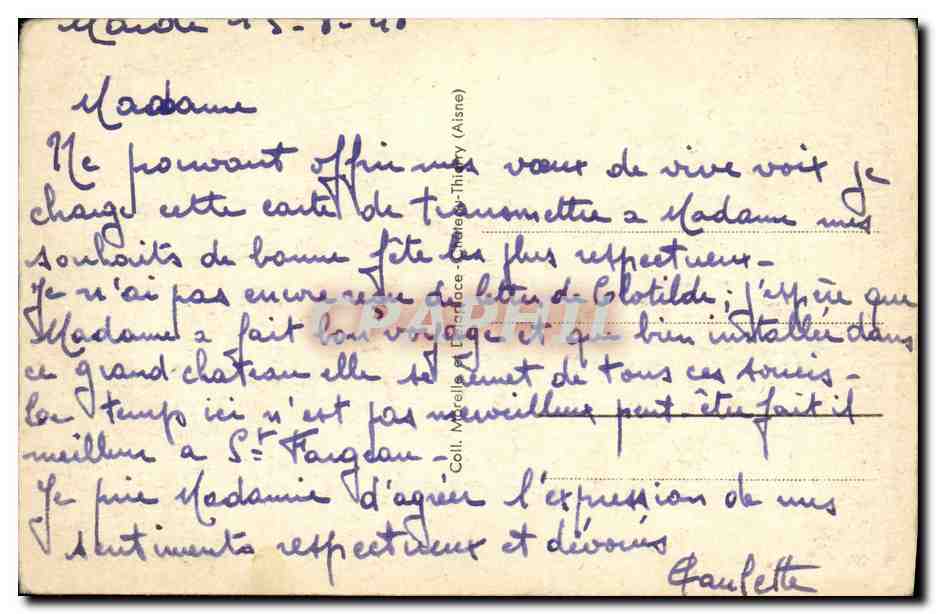 Mardi 13-8-40
Madame
Ne pouvant offrir mes vœux de vive voix je
charge cette carte de transmettre a Madame mes
souhaits de bonne fête les plus respectueux -
Je n'ai pas encore reçu de lettre de Clotilde; j'espère que
Madame a fait bon voyage et que bien installée dans
ce grand chateau elle se remet de tous ces soucis -
Le temps ici n'est pas merveilleux peut-être fait il
meilleur a St Fargeau -
Je prie Madame d'agréer l'expression de mes
sentiments respectueux et dévoués
Paulette
Coll. Morelle et Delaplace - Château-Thierry (Aisne)
CPAPHIL